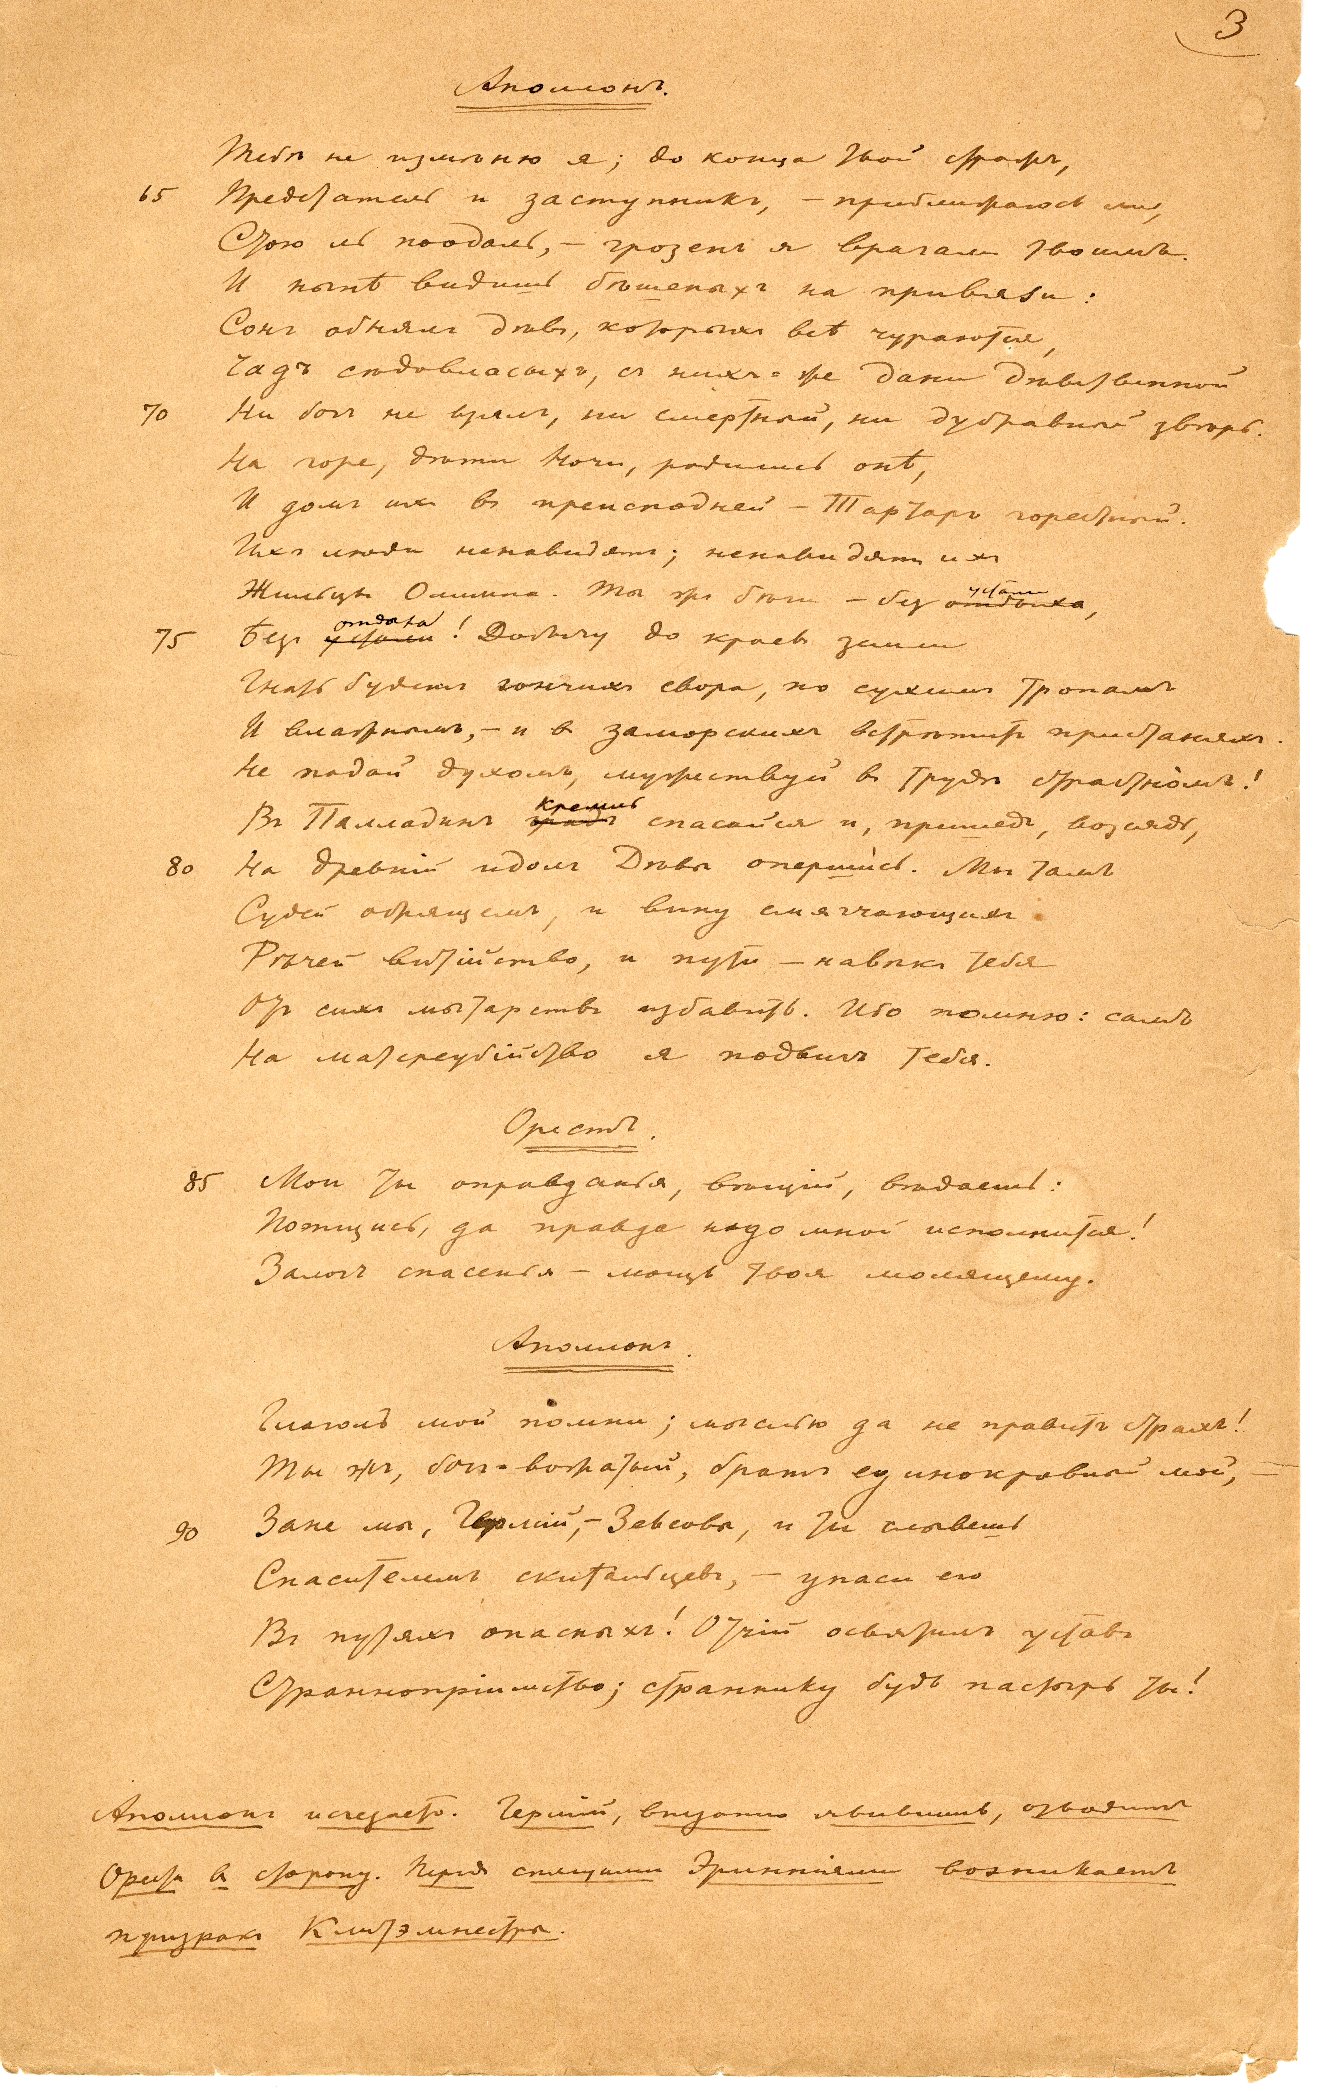 3
Аполлонъ.
Тебѣ не измѣню я; до конца твой стражъ,
65 Предстатель и заступникъ, – приближаюсь ли,
Стою ль поодаль, – грозенъ я врагамъ твоимъ.
И нынѣ видишь бѣшеныхъ на привязи:
Сонъ обнялъ дѣвъ, которыхъ всѣ чураются,
Чадъ сѣдовласыхъ, съ нихъ-же дани дѣвственной
70 Ни богъ не взялъ, ни смертный, ни дубравный звѣрь.
На горе, дѣти Ночи, родились онѣ,
И домъ ихъ въ преисподней – Тартаръ горестный.
Ихъ люди ненавидятъ; ненавидятъ ихъ
Жильцы Олимпа. Ты жъ бѣги – безъ отдыха устали,
75 Безъ устали отдыха! Добычу до краевъ земли
Гнать будетъ гончихъ свора, по сухимъ тропамъ
И влажнымъ, – и въ заморскихъ встрѣтитъ пристаняхъ.
Не падай духомъ, мужествуй въ трудѣ страстномъ!
Въ Палладинъ градъ Кремль спасайся и, пришедъ, возсядь,
80 На древній идолъ Дѣвы опершись. Мы тамъ
Судей обрящемъ, и вину смягчающихъ
Рѣчей витійство, и пути – навѣкъ тебя
Отъ сихъ мытарствъ избавить. Ибо помню: самъ
На матереубійство я подвигъ тебя.
Орестъ.
85 Мои ты оправданья, вѣщій, вѣдаешь:
Потщись, да правда надо мной исполнится!
Залогъ спасенья – мощь твоя молящему.
Аполлонъ.
Глаголъ мой помни; мыслью да не правитъ страхъ!
Ты жъ, богъ-вожатый, братъ единокровный мой, –
90 Зане мы, Гермій, – Зевсовы, и ты слывешь
Спасителемъ скитальцевъ, – упаси его
Въ путяхъ опасныхъ! Отчій освятилъ уставъ
Страннопріимство; страннику будь пастырь ты!
Аполлонъ исчезаетъ. Гермій, внезапно явившись, отводитъ
Ореста въ сторону. Передъ спящими Эринніями возникаетъ
призракъ Клитэмнестры.